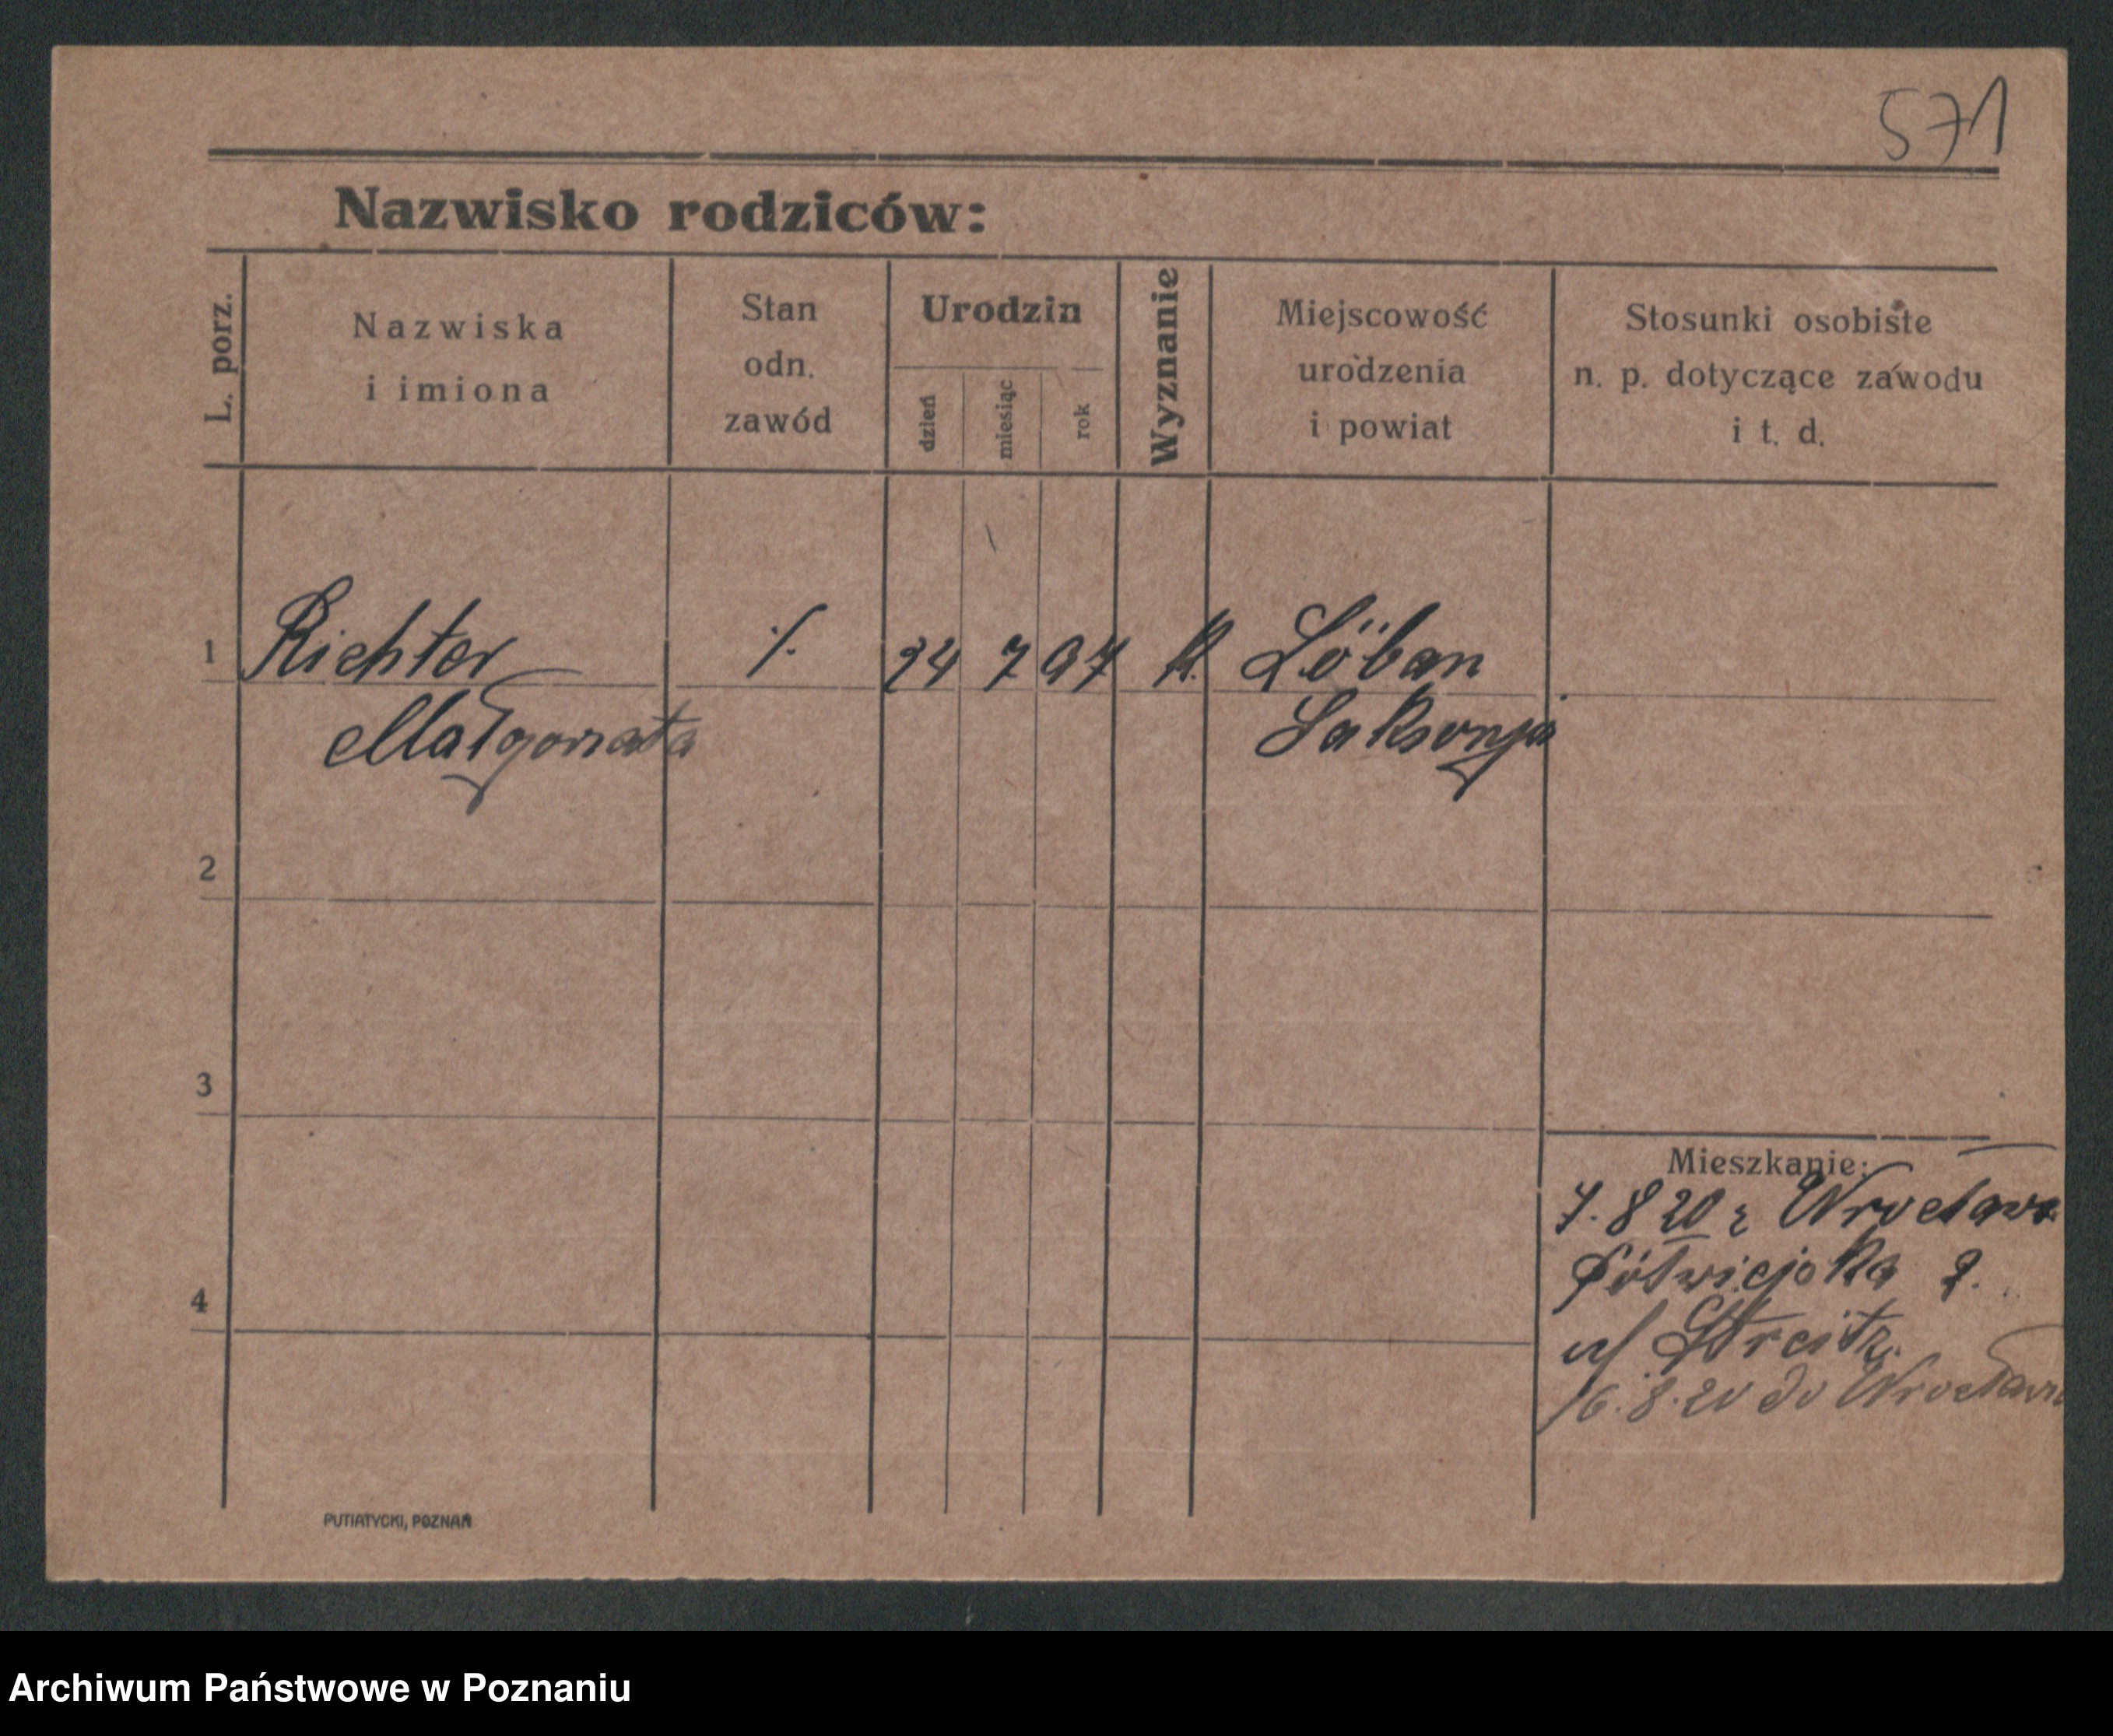 571
Nazwisko rodziców:
L. porz.
Nazwiska
i imiona
Stan
odn.
zawód
Urodzin
dzień
miesiąc
rok
Wyznanie
Miejscowość
urodzenia
i powiat
Stosunki osobiste
n. p. dotyczące zawodu
i t. d.
1 Richter ./. 24 7 97 k. Löban
Małgorzata Saksonja
2
3
Mieszkanie:
7.8 20 z Wrocława
4
u/ Streitz.
16.8.20 do Wrocławia
PUTIATYCKI, POZNAŃ
Archiwum Państwowe w Poznaniu